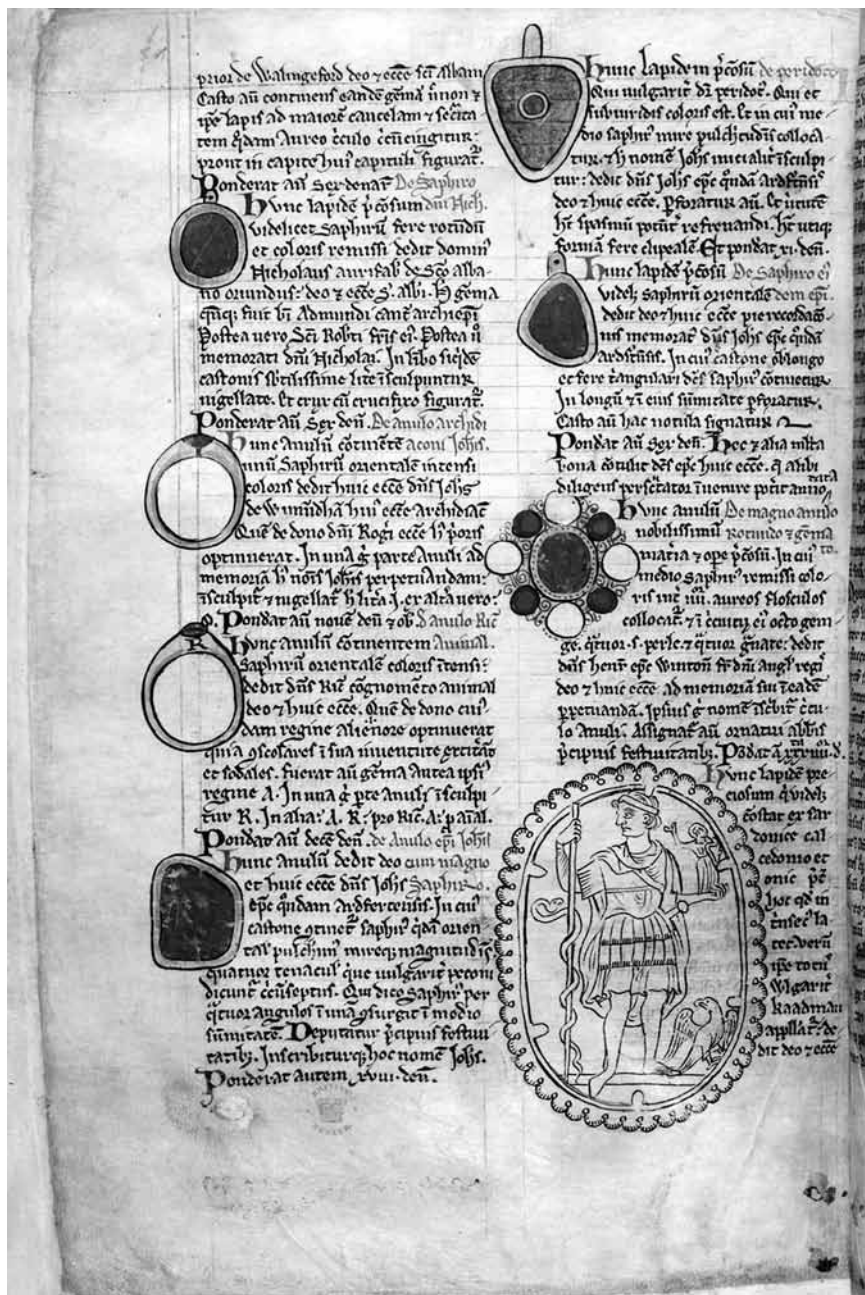 prior de Walingeford deo ⁊ ecc̄e sc̄i Albani
Casto aū continens eandē gēmā ⁊
ip̄e lapis ad maiorē cautelam ⁊ sec̄ita
tem q̄dam aureo c̄culo c̄cūcingitur:
prout in capite hui᷒ capituli figurat᷑.
Ponderat aū Sex denar̄ De Saphiro
Hunc lapidē p̄cōsum dn̄i Nich.
videlicet Saphirū fere rotūdū
et coloris remissi dedit domin᷒
Nicholaus aurifab̄ de Sc̄o alba
no oriundus: deo ⁊ ecc̄e S. albi. H̄ gēma
q̄nq̄; fuit bī Admundi cant̄ archiep̄i
Postea vero Sc̄i Rob̄ti fr̄is ei᷒. Postea ū
memorati dn̄i Nicholai. In
castonis sb̄tilissime lit̄e īsculpuntur
nigellate. Et crux cū crucifixo figurat᷑.
Ponderat aū Sex den̄. De anulo archidi
Hunc anulū cōtinētē aconi Joh̄is.
unū Saphirū orientalē intensi
coloris dedit huic ecc̄e dn̄s Joh̄s
de Wimūdhā hui᷒ ecc̄e archidiac̄
Quē de dono dn̄i Roḡi ecc̄e h᷒ p̄oris
optinuerat. In una g̊ parte anuli ad
memoriā h᷒ nōis Joh̄is perpetuandam:
īsculpit᷑ ⁊ nigellat᷑ h̄ lit̄a. I. ex alt̄a vero:
O. Pondat aū novē den̄ ⁊ ob̄. D̄ anulo Ric̄
Hunc anulū cōtinentem Animal.
Saphirū orientalē coloris ītensi:
dedit dn̄s Ric̄ cōgnomēto animal
deo ⁊ huic ecc̄e. Quē de dono cui᷒
dam regine alienore optinuerat
quia oscolares ī sua iuventute
et sodales. fuerat aū gēma antea ipsi᷒
regine A. In una g̊ p̄te anuli īsculpi
tur R. In alia: A. R: pro Ric̄. A: p aīal.
Pondat aū decē den̄. de Anulo ep̄i Joh̄is
Hunc anulū dedit deo cum magno
et huic ecc̄e dn̄s Joh̄s Saphiro.
ep̄c q̄ndam Ardfertensis. In cui᷒
castone 9tinet᷑ saphir᷒ q̄dā orien
tal᷒ pulchim᷒ mireq; magnitudīs
quatuor tenacul᷒ que vulgarit᷑ peconi
dicunt᷑ c̄cūseptus. Qui dico Saphir᷒ per
q̄tuor angulos ī unā 9surgit ī modio
sūmitatē. Deputatur p̄cipuis festivi
tatib᷒. Inscribiturq; hoc nomen Joh̄s.
Ponderat autem xviii. den̄.
Hunc lapidem p̄cōsū de peridoto
Qui vulgarit᷑ dr̄ peridot᷑. Qui et
subviridis coloris est. Et in cui᷒ me
dio saphir᷒ mire pulch̄tudīs colloca
tur. ⁊ h̄ nomen Joh̄s inicialit᷑ īsculpi
tur: dedit dn̄s Joh̄s ep̄c q̄ndā ardf̄tn̄si᷒
deo ⁊ huic ecc̄e. perforat᷑ aū. Et v̄tutē
ht̄ spasmū potūt᷑ refrenandi. ht̄ utiq;
formā fere clipealē. Et pondat xi. den̄.
Hunc lapidē p̄cōsū De Saphiro ei᷒
videl; saphirū orientalē dem ep̄i.
dedit deo ⁊ huic ecc̄e pie recordac̄o
nis memorat᷒ dn̄s Joh̄s ep̄c q̄ndā
Ardf̄tn̄sis. In cui᷒ castone oblongo
et fere t̄angulari dc̄s saphir᷒ cōtinetur
In longū ⁊ ī eius sūmitate p̄foratur.
Casto aū hac notula signatur
Pondat aū Sex den̄. Hec ⁊ alia m̄lta
bona cōtulit dc̄s ep̄c huic ecc̄e. q̄ alibi
diligens perscrutator īvenire potit annotata
Hunc anulū De magno anulo
nobilissimū rotundo ⁊ gēma
materia ⁊ ope p̄cōsū. In cui᷒ to.
medio saphir᷒ remissi colo
ris int̄ iiii. aureos flosculos
collocat᷑. ⁊ ī c̄cuitu ei᷒ octo gem
ge. q̄tuor. s. perle. ⁊ q̄tuor g̊nate: dedit
dn̄s henr̄ ep̄c Winton̄ fr̄ dn̄i angl᷒ regī
deo ⁊ huic ecc̄e ad memoriā sui ī eadē
perpetuandā. Ipsius g̊ nomē īscbit᷑ c̄cu
lo anuli. Assignat᷑ aū ornatui abb̄is
p̄cipuis festivitatib᷒.
Hunc lapidē pre
ciosum q̄ videl;
cōstat ex sar
donice cal
cedonio et
onic p̄t̄
hoc qd̄ in
t̄nsec᷒ la
tec verū
ip̄e tot᷒
vlgarit᷑
kaadmau
appllat᷑: de
dit deo ⁊ ecc̄e